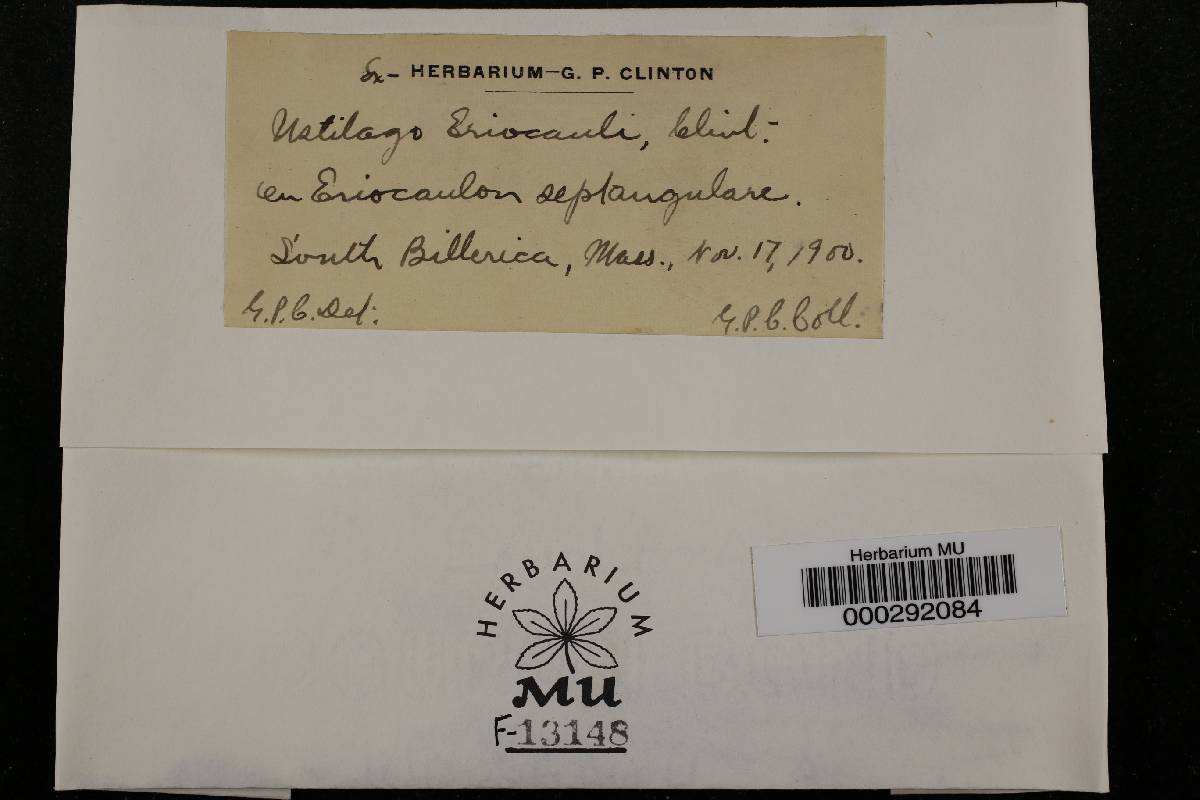 Ex- HERBARIUM-G. P. CLINTON
Ustilago Eriocauli, Clint.-
on Eriocaulon septangulare.
South Billerica, Mass., Nov. 17, 1900.
G.P.C. Det. G.P.C. Coll.
Herbarium MU
000292084
HERBARIUM
MU
F-13148